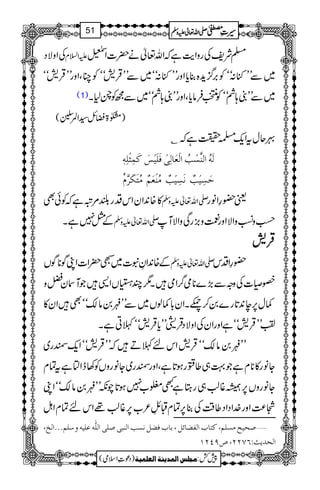 سیرتِ مصطفیٰ صلی اللہ تعالیٰ علیہ وسلم
51
مسلم شریف کی روایت ہے کہ اللہ تعالیٰ نے حضرت اسمٰعیل علیہ السلام کی اولاد
میں سے ’’کنانہ‘‘ کو برگزیدہ بنایا اور ’’کنانہ‘‘ میں سے ’’قریش‘‘ کو چنا، اور ’’قریش‘‘
میں سے ’’بنی ہاشم‘‘ کو منتخب فرمایا، اور ’’بنی ہاشم‘‘ میں سے مجھ کو چن لیا۔(۱)
(مشکوٰۃ فضائل سید المرسلین)
بہرحال یہ ایک مسلمہ حقیقت ہے کہ ؎
لَهُ النَّسْبُ الْعَالِيْ فَلَيْسَ كَمِثْلِهِ
حَسِيْبٌ نَسِيْبٌ مُنْعَمٌ مُتَكَرَّمٌ
یعنی حضور انور صلی اللہ تعالیٰ علیہ وسلم کا خاندان اس قدر بلند مرتبہ ہے کہ کوئی بھی
حسب ونسب والا اور نعمت و بزرگی والا آپ صلی اللہ تعالیٰ علیہ وسلم کے مثل نہیں ہے۔
قریش
حضور اقدس صلی اللہ تعالیٰ علیہ وسلم کے خاندانِ نبوت میں سبھی حضرات اپنی گوناگوں
خصوصیات کی وجہ سے بڑے نامی گرامی ہیں۔ مگر چند ہستیاں ایسی ہیں جو آسمان فضل و
کمال پر چاند تارے بن کر چمکے۔ ان باکمالوں میں سے ’’فہر بن مالک‘‘ بھی ہیں ان کا
لقب ’’قریش‘‘ ہے اور ان کی اولاد قریشی ’’یا قریش‘‘ کہلاتی ہے۔
’’فہر بن مالک‘‘ قریش اس لئے کہلاتے ہیں کہ ’’قریش‘‘ ایک سمندری
جانور کا نام ہے جو بہت ہی طاقتور ہوتا ہے، اور سمندری جانوروں کو کھا ڈالتا ہے یہ تمام
جانوروں پر ہمیشہ غالب ہی رہتا ہے کبھی مغلوب نہیں ہوتا چونکہ ’’فہر بن مالک‘‘ اپنی
شجاعت اور خداداد طاقت کی بنا پر تمام قبائلِ عرب پر غالب تھے اس لئے تمام اہل
صحیح مسلم، کتاب الفضائل، باب فضل نسب النبی صلی اللہ علیہ وسلم...الخ،
الحدیث: ۲۲۷۶، ص ۱۲۴۹
پیش کش: مجلس المدینة العلمیة (دعوتِ اسلامی)